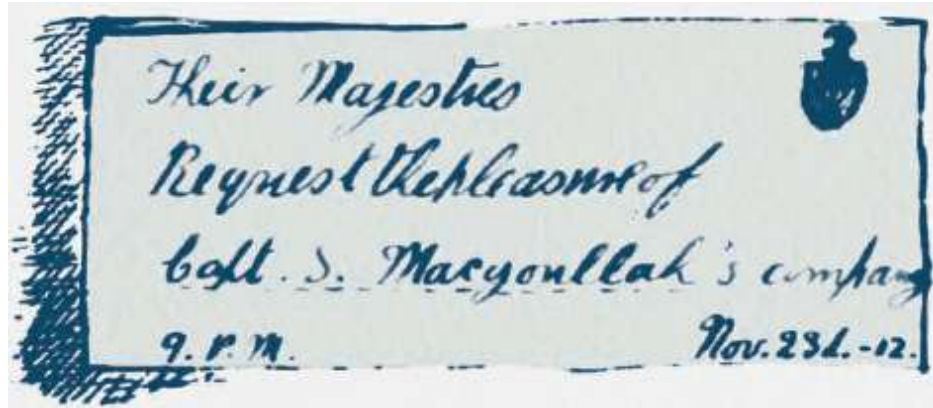 Their Majesties
Request the pleasure of
Capt. S. Macyoullah's company
9. P. M. Nov. 23d. -12.